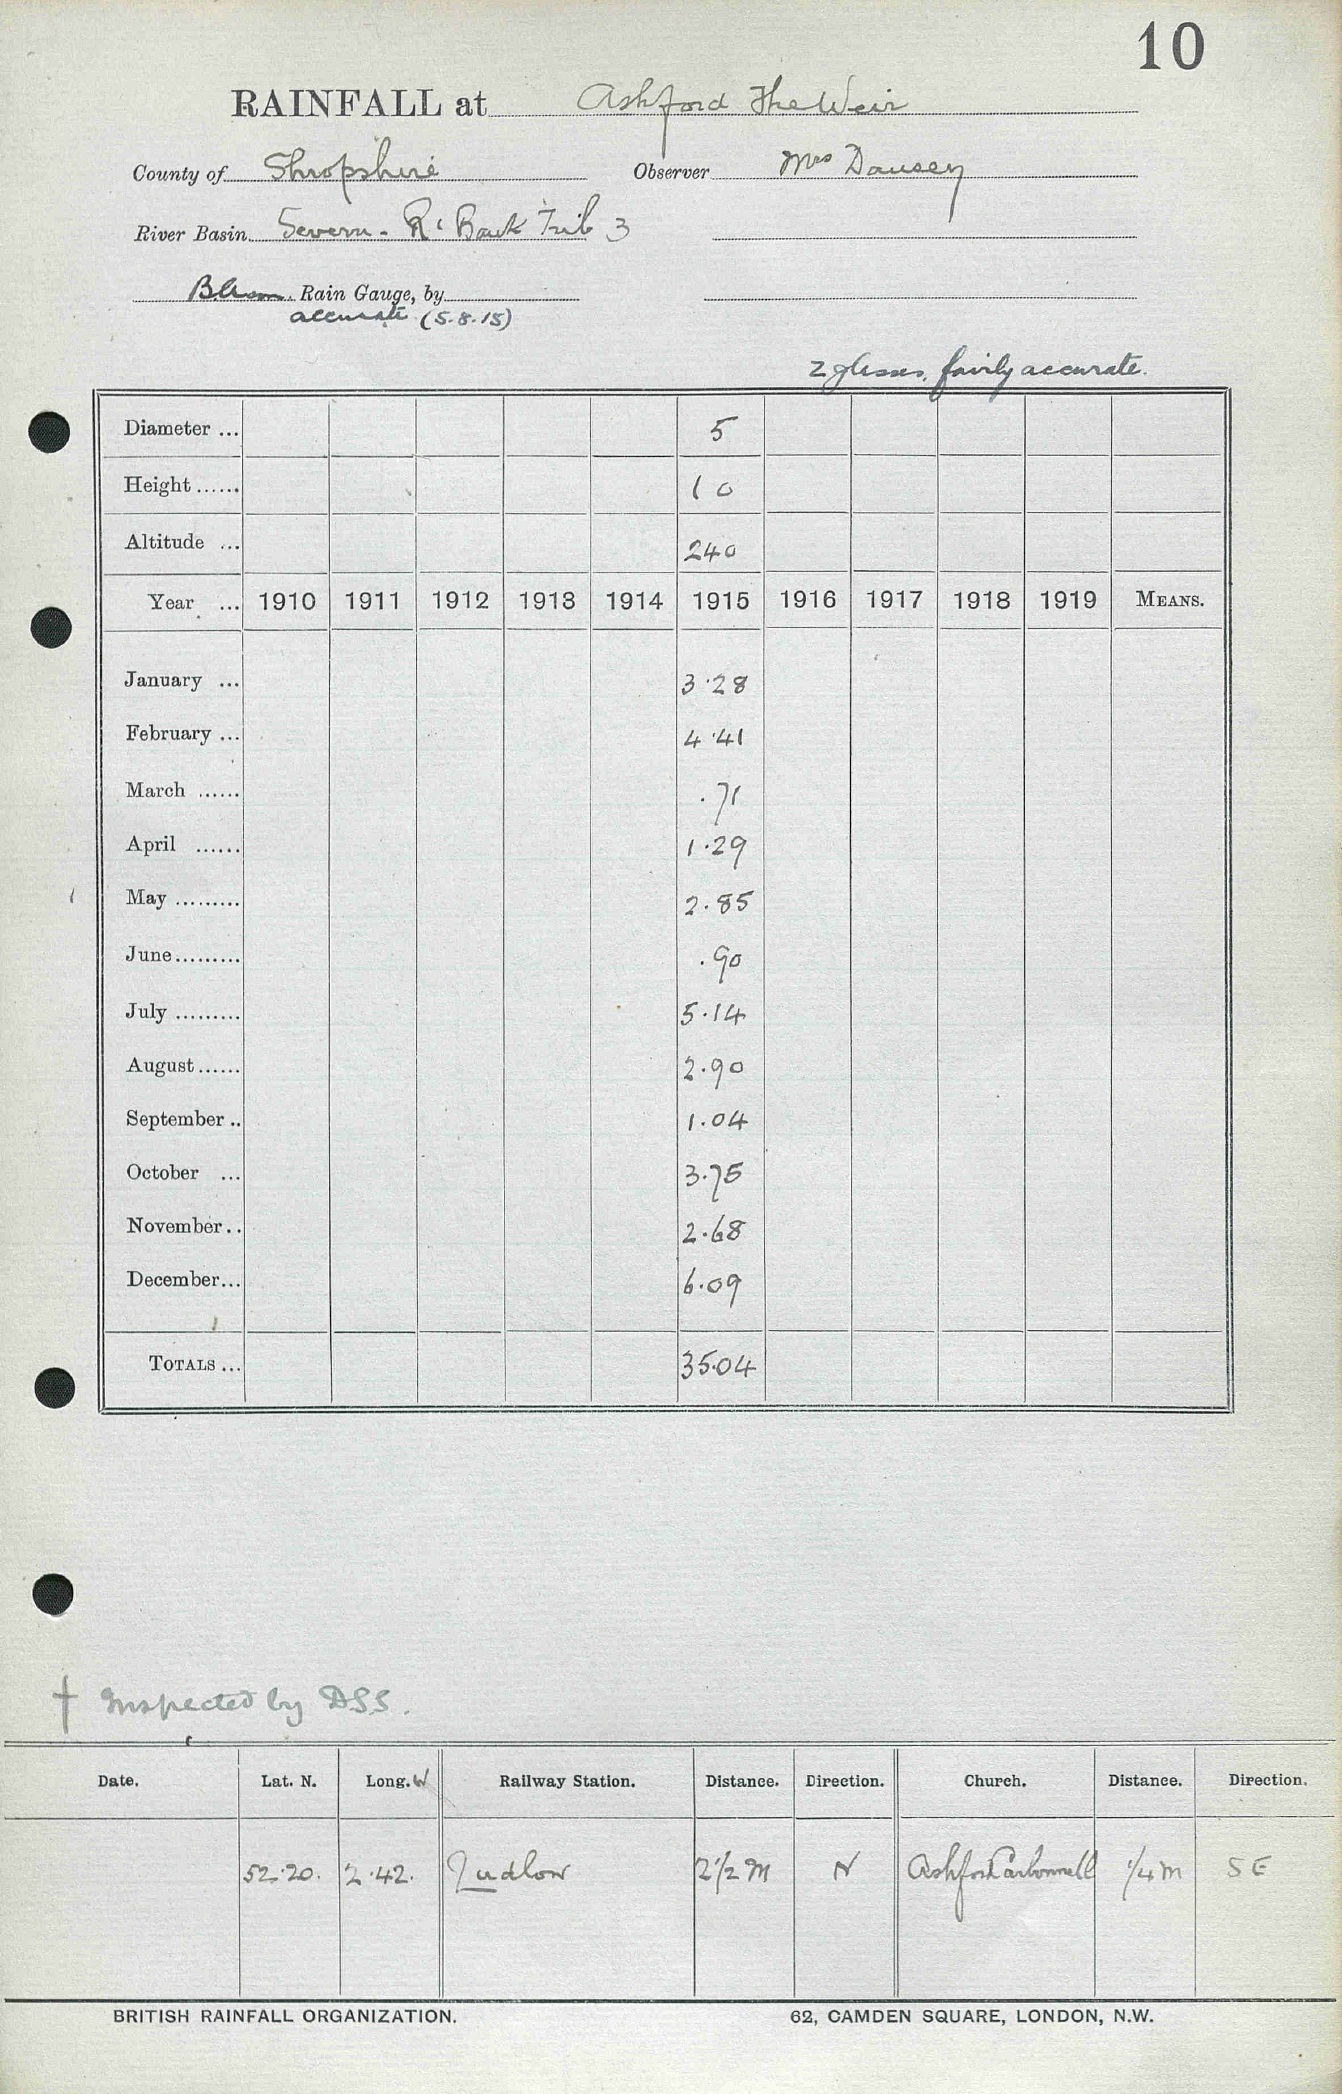 10
RAINFALL at Ashford The Weir
County of Shropshire Observer Mrs
River Basin Severn - Rt Bank Trib 3
Rain Gauge, by
accurate (5.8.15)
2 glasses, fairly accurate.
Diameter ... 5
Height ...... 10
Altitude ... 240
Year ... 1910 1911 1912 1913 1914 1915 1916 1917 1918 1919 MEANS.
January ... 3.28
February ... 4.41
March ...... .71
April ...... 1.29
May ......... 2.85
June ......... .90
July ......... 5.14
August ...... 2.90
September .. 1.04
October ... 3.75
November .. 2.68
December ... 6.09
TOTALS ... 35.04
† Inspected by DSS.
Date. Lat. N. Long. W Railway Station. Distance. Direction. Church. Distance. Direction.
52.20. 2.42. Ludlow 2½ M N Ashford Carbonnell ¼ m SE
BRITISH RAINFALL ORGANIZATION. 62, CAMDEN SQUARE, LONDON, N.W.